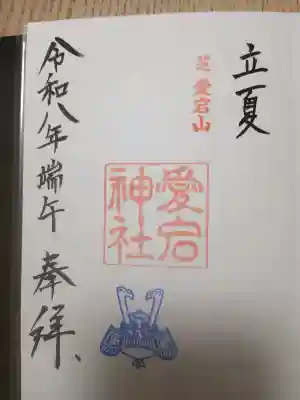 立夏
芝 愛宕山
愛宕
神社
令和八年端午 奉拝、